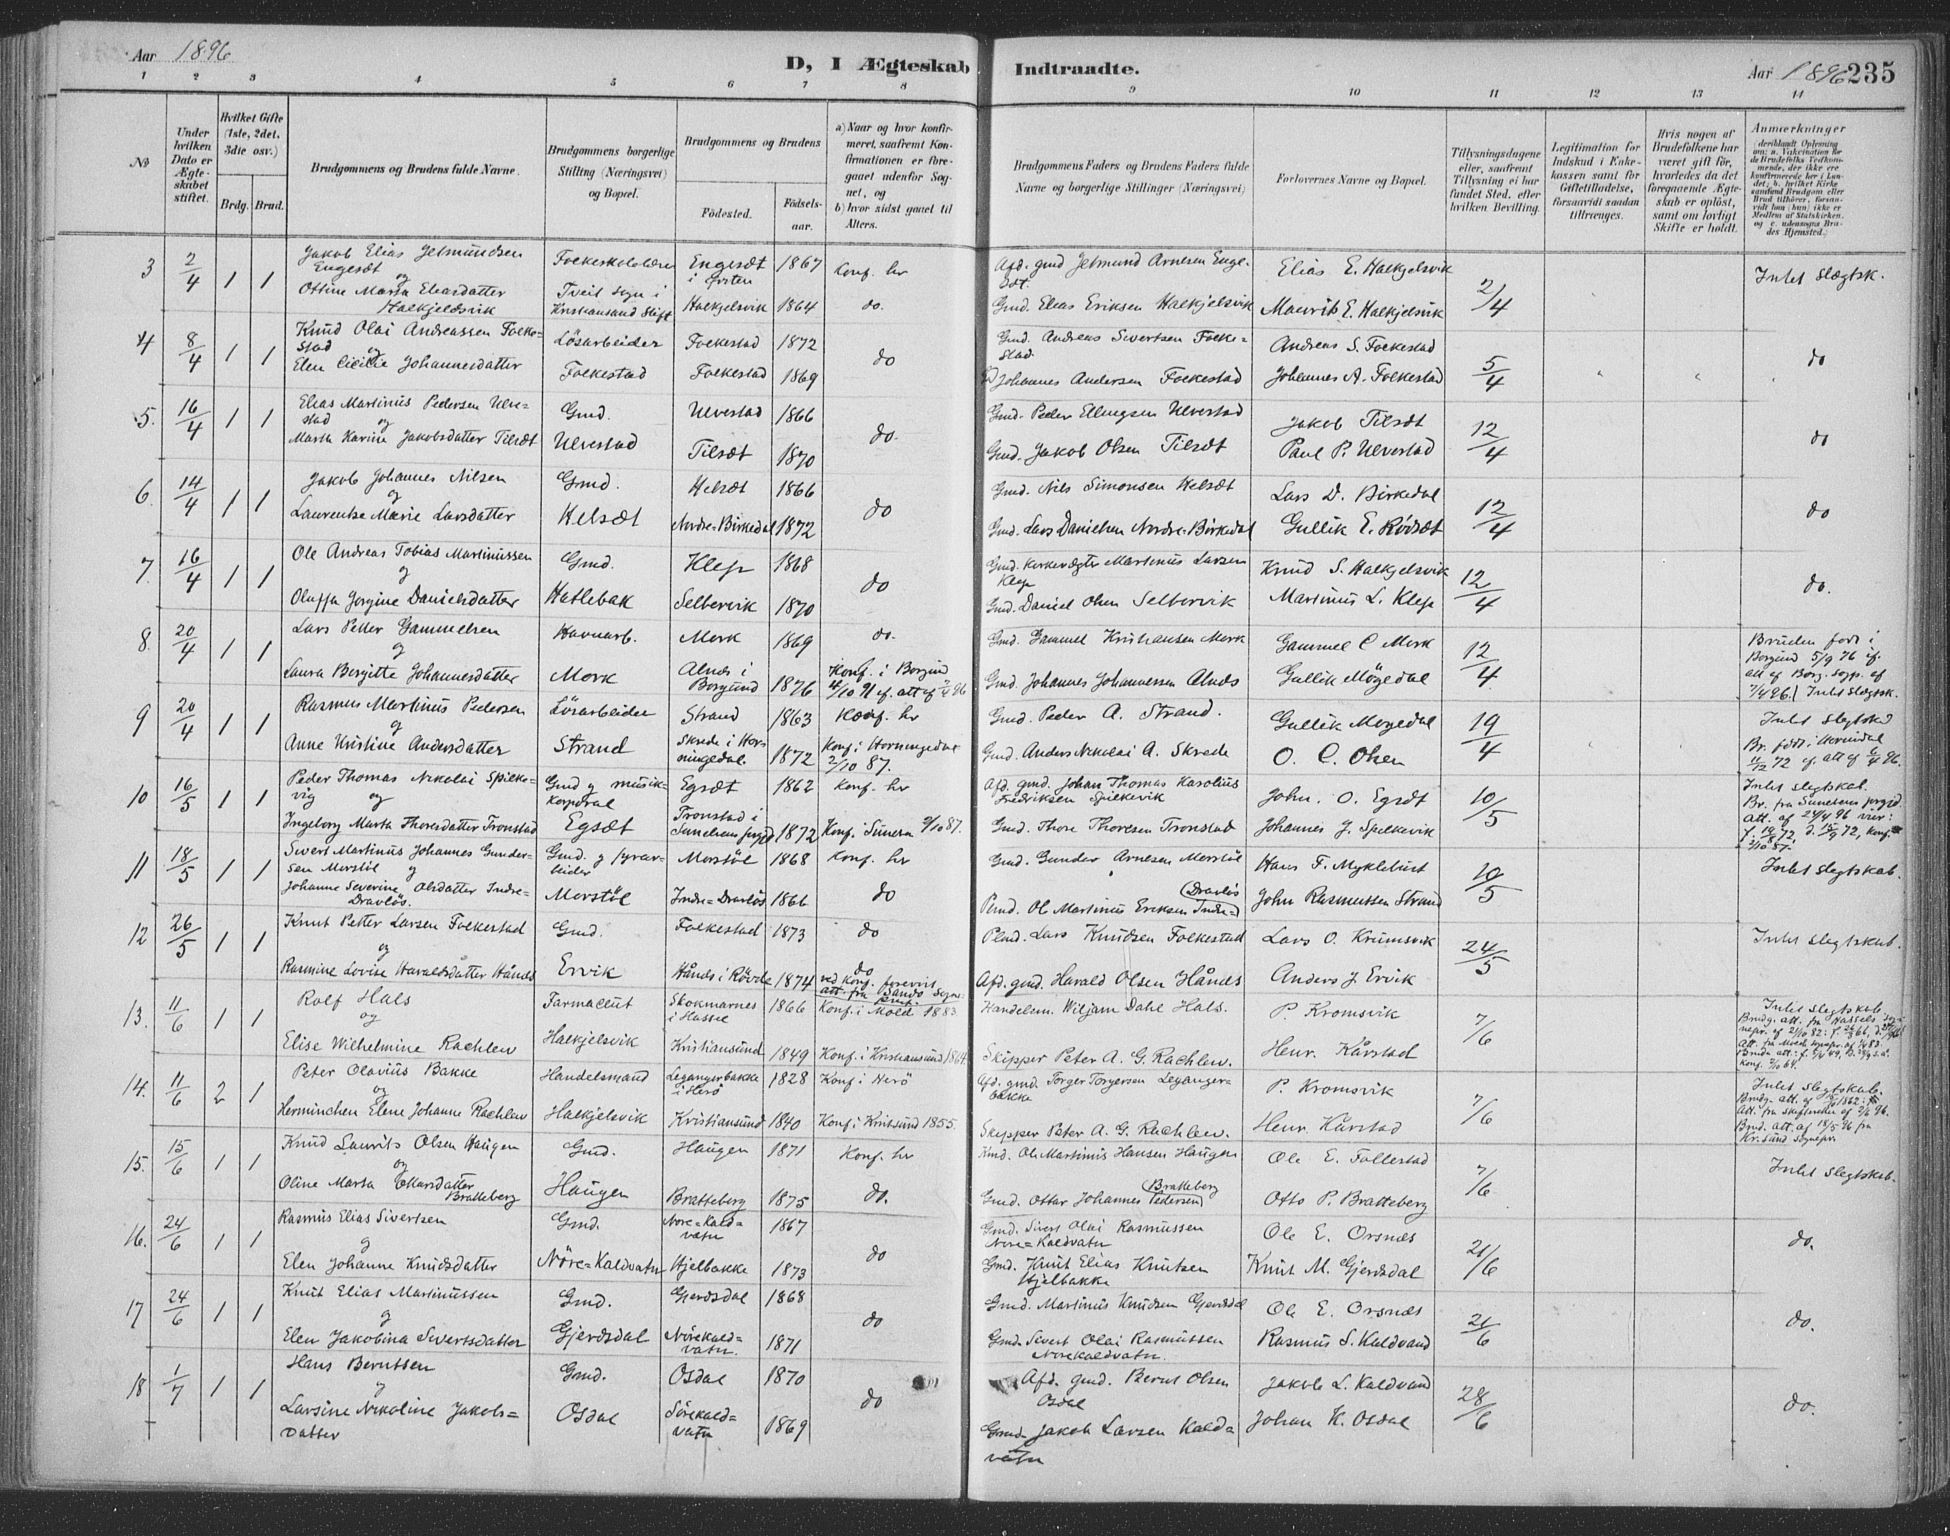 Aar 1896
D, I Ægteskab Indtraadte.
Aar 1896 235
1 2 3 4 5 6 7 8 9 10 11 12 13 14
No
Under hvilken Dato er Ægteskabet stiftet.
Hvilket Gifte (1ste, 2det, 3die osv.)
Brdg. Brud.
Brudgommens og Brudens fulde Navne.
Brudgommens borgerlige Stilling (Næringsvei) og Bopæl.
Brudgommens og Brudens
Fødested.
Fødselsaar.
a) Naar og hvor konfirmeret, saafremt Konfirmationen er foregaaet udenfor Sognet, og
b) hvor sidst gaaet til Alters.
Brudgommens Faders og Brudens Faders fulde Navne og borgerlige Stillinger (Næringsvei)
Forlovernes Navne og Bopæl.
Tillysningsdagene eller, saafremt Tillysning ei har fundet Sted, efter hvilken Bevilling.
Legitimation for Indskud i Enkekassen samt for Giftetilladelse, forsaavidt saadan tiltrænges.
Hvis nogen af Brudefolkene har været gift før, hvorledes da det foregaaende Ægteskab er opløst, samt om lovligt Skifte er holdt.
Anmerkninger
3 2/4 1 1 Jakob Elias Jetmundsen Engesæt
og
Ottine Marta Eliasdatter Halkjeldsvik
Folkeskolelærer
Tveit sogn i Kristiansand Stift
Engesæt i Ørsten 1867
Halkjelsvik 1864
Konf. hr
do.
Afd. gmd Jetmund Arnesen Engesæt
Gmd. Elias Eriksen Halkjelsvik
Elias E. Halkjelsvik
Maurits E. Halkjelsvik
2/4
Intet slægtsk.
4 8/4 1 1 Knud Olai Andreassen Folkestad
og
Elen Cicilie Johannesdatter
Lösarbeider
Folkestad
Folkestad 1872
Folkestad 1869
do
Gmd. Andreas Sivertsen Folkestad
Johannes Andersen Folkestad
Andreas S. Folkestad
Johannes A. Folkestad
5/4
do
5. 16/4 1 1 Elias Martinus Pedersen Ulvestad
og
Marta Karine Jakobsdatter Tilsæt
Gmd.
Ulvestad
Ulvestad 1866
Tilsæt 1870
do.
Gmd. Peder Ellingsen Ulvestad
Gmd. Jakob Olsen Tilsæt
Jakob Tilsæt
Paul P. Ulvestad
12/4
do
6. 14/4 1 1 Jakob Johannes Nilsen
og
Laurentse Marie Larsdatter
Gmd.
Helsæt
Helsæt 1866
Nordre-Birkedal 1872
do
Gmd. Nils Simonsen Helsæt
Gmd. Lars Danielsen Nordre-Birkedal
Lars D. Birkedal
Gullik E. Rödsæt
12/4
do
7. 16/4 1 1 Ole Andreas Tobias Martinussen
og
Oluffa Jorgine Danielsdatter
Gmd.
Hatlebak
Klep 1868
Selbervik 1870
do
Gmd. kirkeværgte Martinus Larsen Klep
Gmd. Daniel Olsen Selbervik
Knud S. Halkjelsvik
Martinus L. Klep
12/4
do.
8. 20/4 1 1 Lars Petter Gammelsen
og
Laura Bergitte Johannesdatter
Havnarb.
Mork
Mork 1869
Alnes i Borgund 1876
do.
Konf. i Borgund 4/10 91 ef. att af 7/4 96
Gmd. Gammel Kristiansen Mork
Gmd. Johannes Johannessen Alnes
Gammel C Mork
Gullik Mögedal
12/4
Bruden født i Borgund 5/9 76 ef. att af Borg. sogp. af 7/4 96. Intet slægtsk.
9 20/4 1 1 Rasmus Martinus Pedersen
og
Anne Kristine Andersdatter
Lösarbeider
Strand
Strand 1863
Skrede i Horningdal 1872
Konf. hr
Konf. i Horningedal 2/10 87.
Gmd. Peder A. Strand.
Gmd. Anders Nikolai A. Skrede
Gullik Mogedal
O. C. Olsen
19/4
Intet slegtskab
10 16/5 1 1 Peder Thomas Nikolai Spilkevig
og
Ingeborg Marta Thoresdatter Tronstad
Gmd og musikkorporal
Egsæt
Egsæt 1862
Tronstad i Sunelvens prgjd 1872
Konf. hr
Afd. gmd. Johan Thomas Karolius Fredriksen Spilkevik
Gmd. Thore Thoresen Tronstad
John. O. Egsæt
Johannes J. Spilkevik
10/5
Intet slegtskab.
Br. fra Sunelvens prgjd.
11 18/5 1 1 Sivert Martinus Johannes Gundersen Morstöl og
Johanne Severine Olsdatter Indre-Dravlös.
Gmd. og fyrarbeider
Morstöl
Morstöl 1868
Indre-Dravlös 1866
Konf. hr
do
Gmd. Gunder Arnesen Morstöl
Pmd. Ole Martinus Eriksen Indre-Dravlös
Hans F. Myklebust
John Rasmussen Strand
10/5
Intet slegtskab.
12 26/5 1 1 Knut Petter Larsen Folkestad
og
Rasmine Lovise Haraldsdatter Hånes
Gmd.
Ervik
Folkestad 1873
Hånes i Rövde 1874
do
do
Pmd. Lars Knudsen Folkestad
Afd. gmd. Harald Olsen Hånes
Lars O. Krumsvik
Anders J Ervik
24/5
Intet slegtskab.
13. 11/6 1 1 Rolf Hals
og
Elise Wilhelmine Rachlew
Farmaceut
Halkjelsvik
Skokmarnes i Hassel 1866
Kristiansund 1849
Konf. i Mold 1883
Konf. i Kristiansund 1864
Handelsm. Wiljam Dahl Hals.
Skipper Peter A. G. Rachlew.
P. Kromsvik
Henr. Kårstad
7/6
Intet slegtskab.
14. 11/6 2 1 Peter Olavius Bakke
og
Herminchen Elene Johanne Rachlew
Handelsmand
Halkjelsvik
Legangerbakke i Herö 1828
Kristiansund 1840
Konf. i Herö
Konf. i Kristsund 1855.
Afd. gmd. Torger Torgersen Legangerbakke
Skipper Peter A. G. Rachlew.
P. Kromsvik
Henr. Kårstad
7/6
Intet slegtskab.
15. 15/6 1 1 Knud Laurits Olsen Haugen
og
Oline Marta Ottarsdatter Bratteberg
Gmd.
Haugen
Haugen 1871
Bratteberg 1875
Konf. hr
do.
Gmd. Ole Martinus Hansen Haugen
Gmd. Ottar Johannes Pedersen Bratteberg
Ole E. Follestad
Otto P. Bratteberg
7/6
Intet slegtskab.
16. 24/6 1 1 Rasmus Elias Sivertsen
og
Elen Johanne Knudsdatter
Gmd.
Nöre-Kaldvatn
Nore-Kaldvatn 1867
Hjelbakke 1873
do
Gmd. Sivert Olai Rasmussen Nore-Kaldvatn
Gmd. Knut Elias Knutsen Hjelbakke
Ole E. Orsnæs
Knut M. Gjerdsdal
21/6
do.
17 24/6 1 1 Knut Elias Martinussen
og
Elen Jakobina Sivertsdatter
Gmd.
Gjerdsdal
Gjerdsdal 1868
Nörekaldvatn 1871
do
Gmd. Martinus Knudsen Gjerdsdal
Gmd. Sivert Olai Rasmussen Nörekaldvatn.
Ole E. Orsnæs
Rasmus S. Kaldvand
21/6
do.
18 1/7 1 1 Hans Berntsen
og
Larsine Nikoline Jakobsdatter
Gmd.
Osdal
Osdal 1870
Sörekaldvatn 1869
do
Afd. gmd. Bernt Olsen Osdal
Gmd. Jakob Larsen Kaldvatn
Jakob L. Kaldvand
Johan K. Osdal
28/6
do.